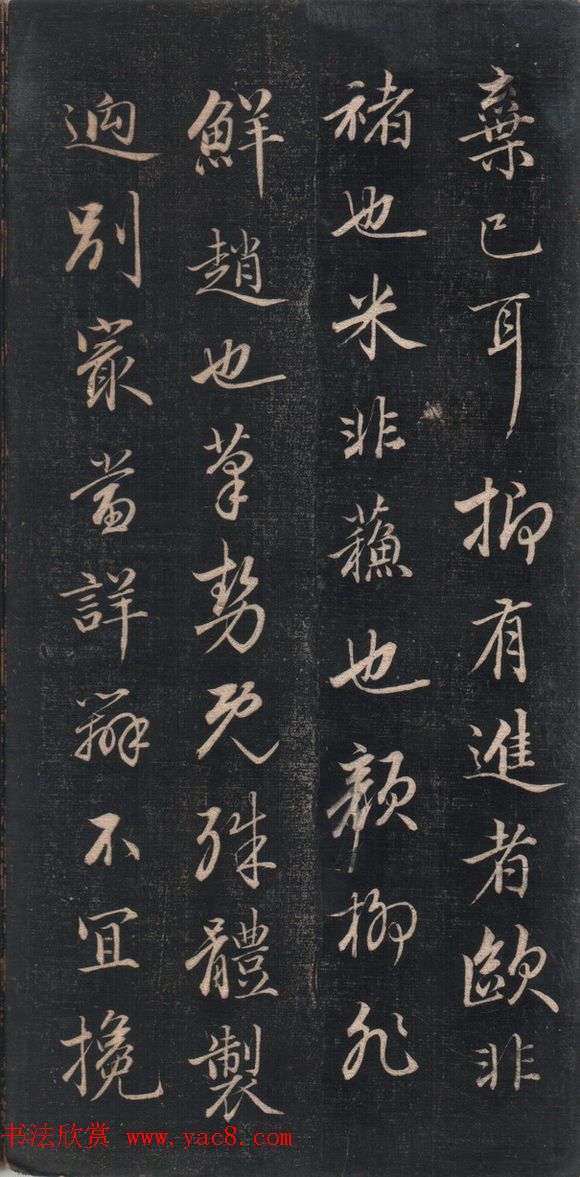 棄已耳抑有進者歐非
褚也米非蘓也顏柳非
鮮趙也筆勢既殊體製
迥別㝡當詳辨不宜攙
书法欣赏 www.yac8.com